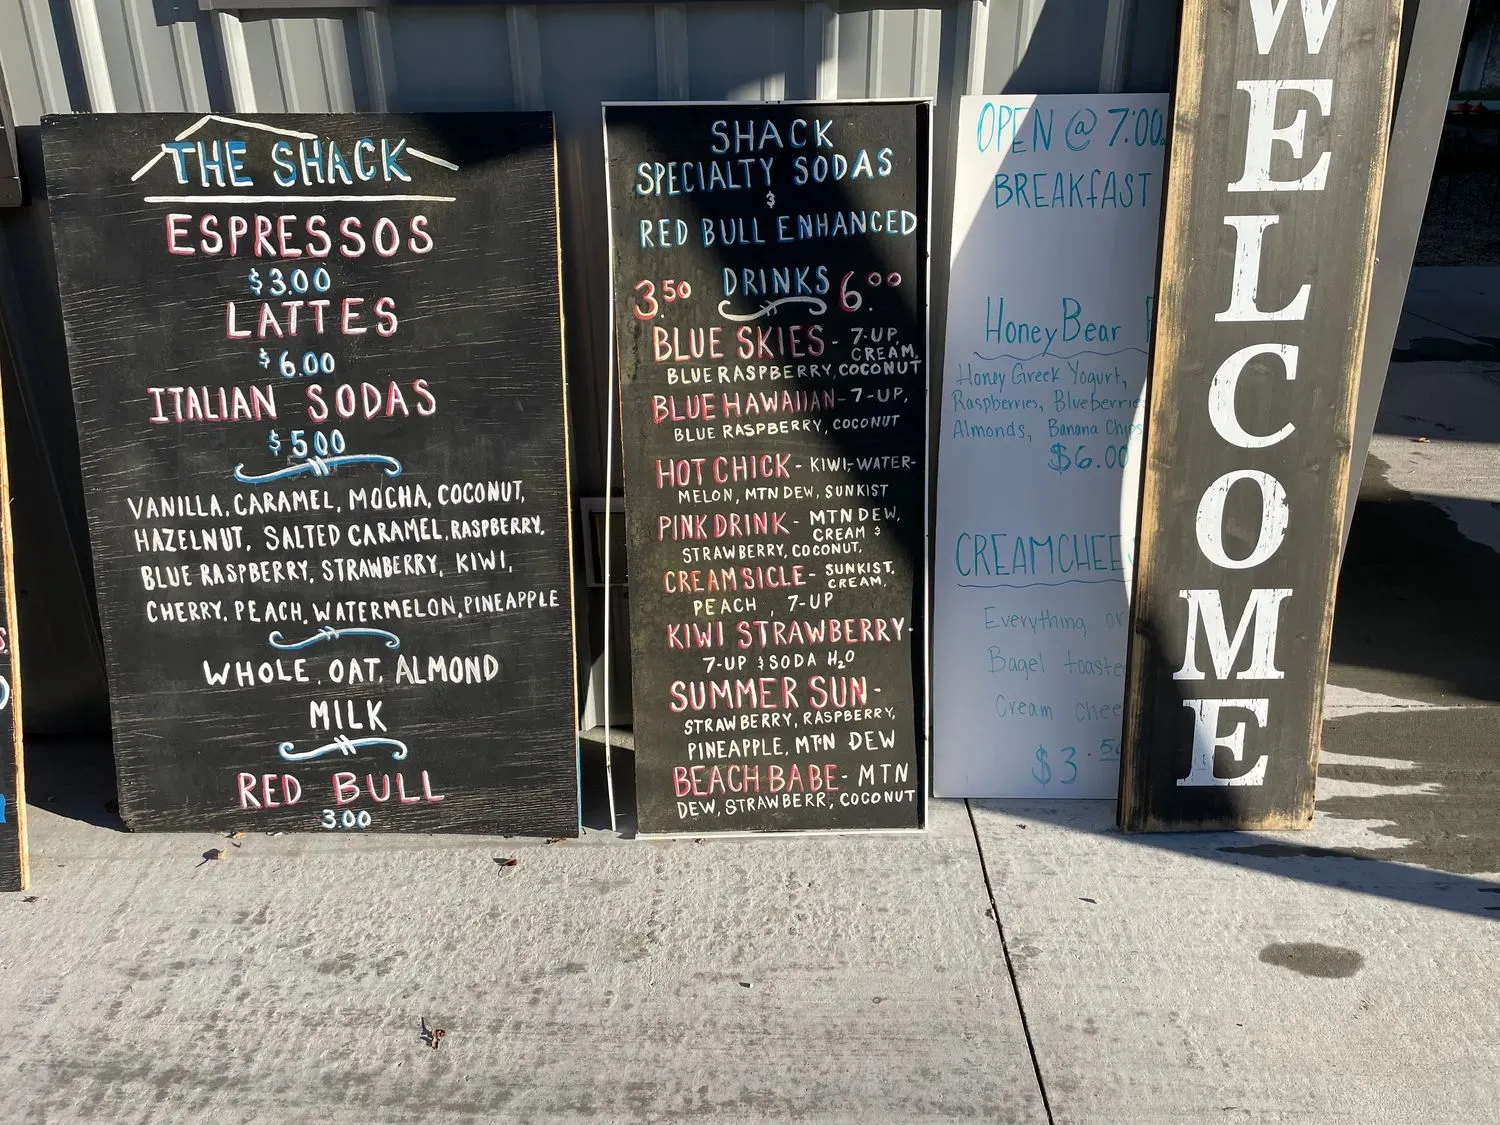 THE SHACK
ESPRESSOS
$3.00
LATTES
$6.00
ITALIAN SODAS
$5.00
VANILLA, CARAMEL, MOCHA, COCONUT,
HAZELNUT, SALTED CARAMEL, RASPBERRY,
BLUE RASPBERRY, STRAWBERRY, KIWI,
CHERRY, PEACH, WATERMELON, PINEAPPLE
WHOLE, OAT, ALMOND
MILK
RED BULL
3.00
SHACK
SPECIALTY SODAS
&
RED BULL ENHANCED
3.50 DRINKS 6.00
BLUE SKIES - 7-UP,
CREAM,
BLUE RASPBERRY, COCONUT
BLUE HAWAIIAN - 7-UP,
BLUE RASPBERRY, COCONUT
HOT CHICK - KIWI, WATER-
MELON, MTN DEW, SUNKIST
PINK DRINK - MTN DEW,
CREAM &
STRAWBERRY, COCONUT,
CREAMSICLE - SUNKIST,
CREAM,
PEACH, 7-UP
KIWI STRAWBERRY -
7-UP & SODA H2O
SUMMER SUN -
STRAWBERRY, RASPBERRY,
PINEAPPLE, MTN DEW
BEACH BABE - MTN
DEW, STRAWBERR, COCONUT
OPEN @ 7:00
BREAKFAST
HoneyBear
Honey Greek Yogurt,
Raspberries, Blueberrie
Almonds, Banana Chips
$6.00
CREAMCHEE
Everything
Bagel toaste
Cream chee
$3.50
WELCOME